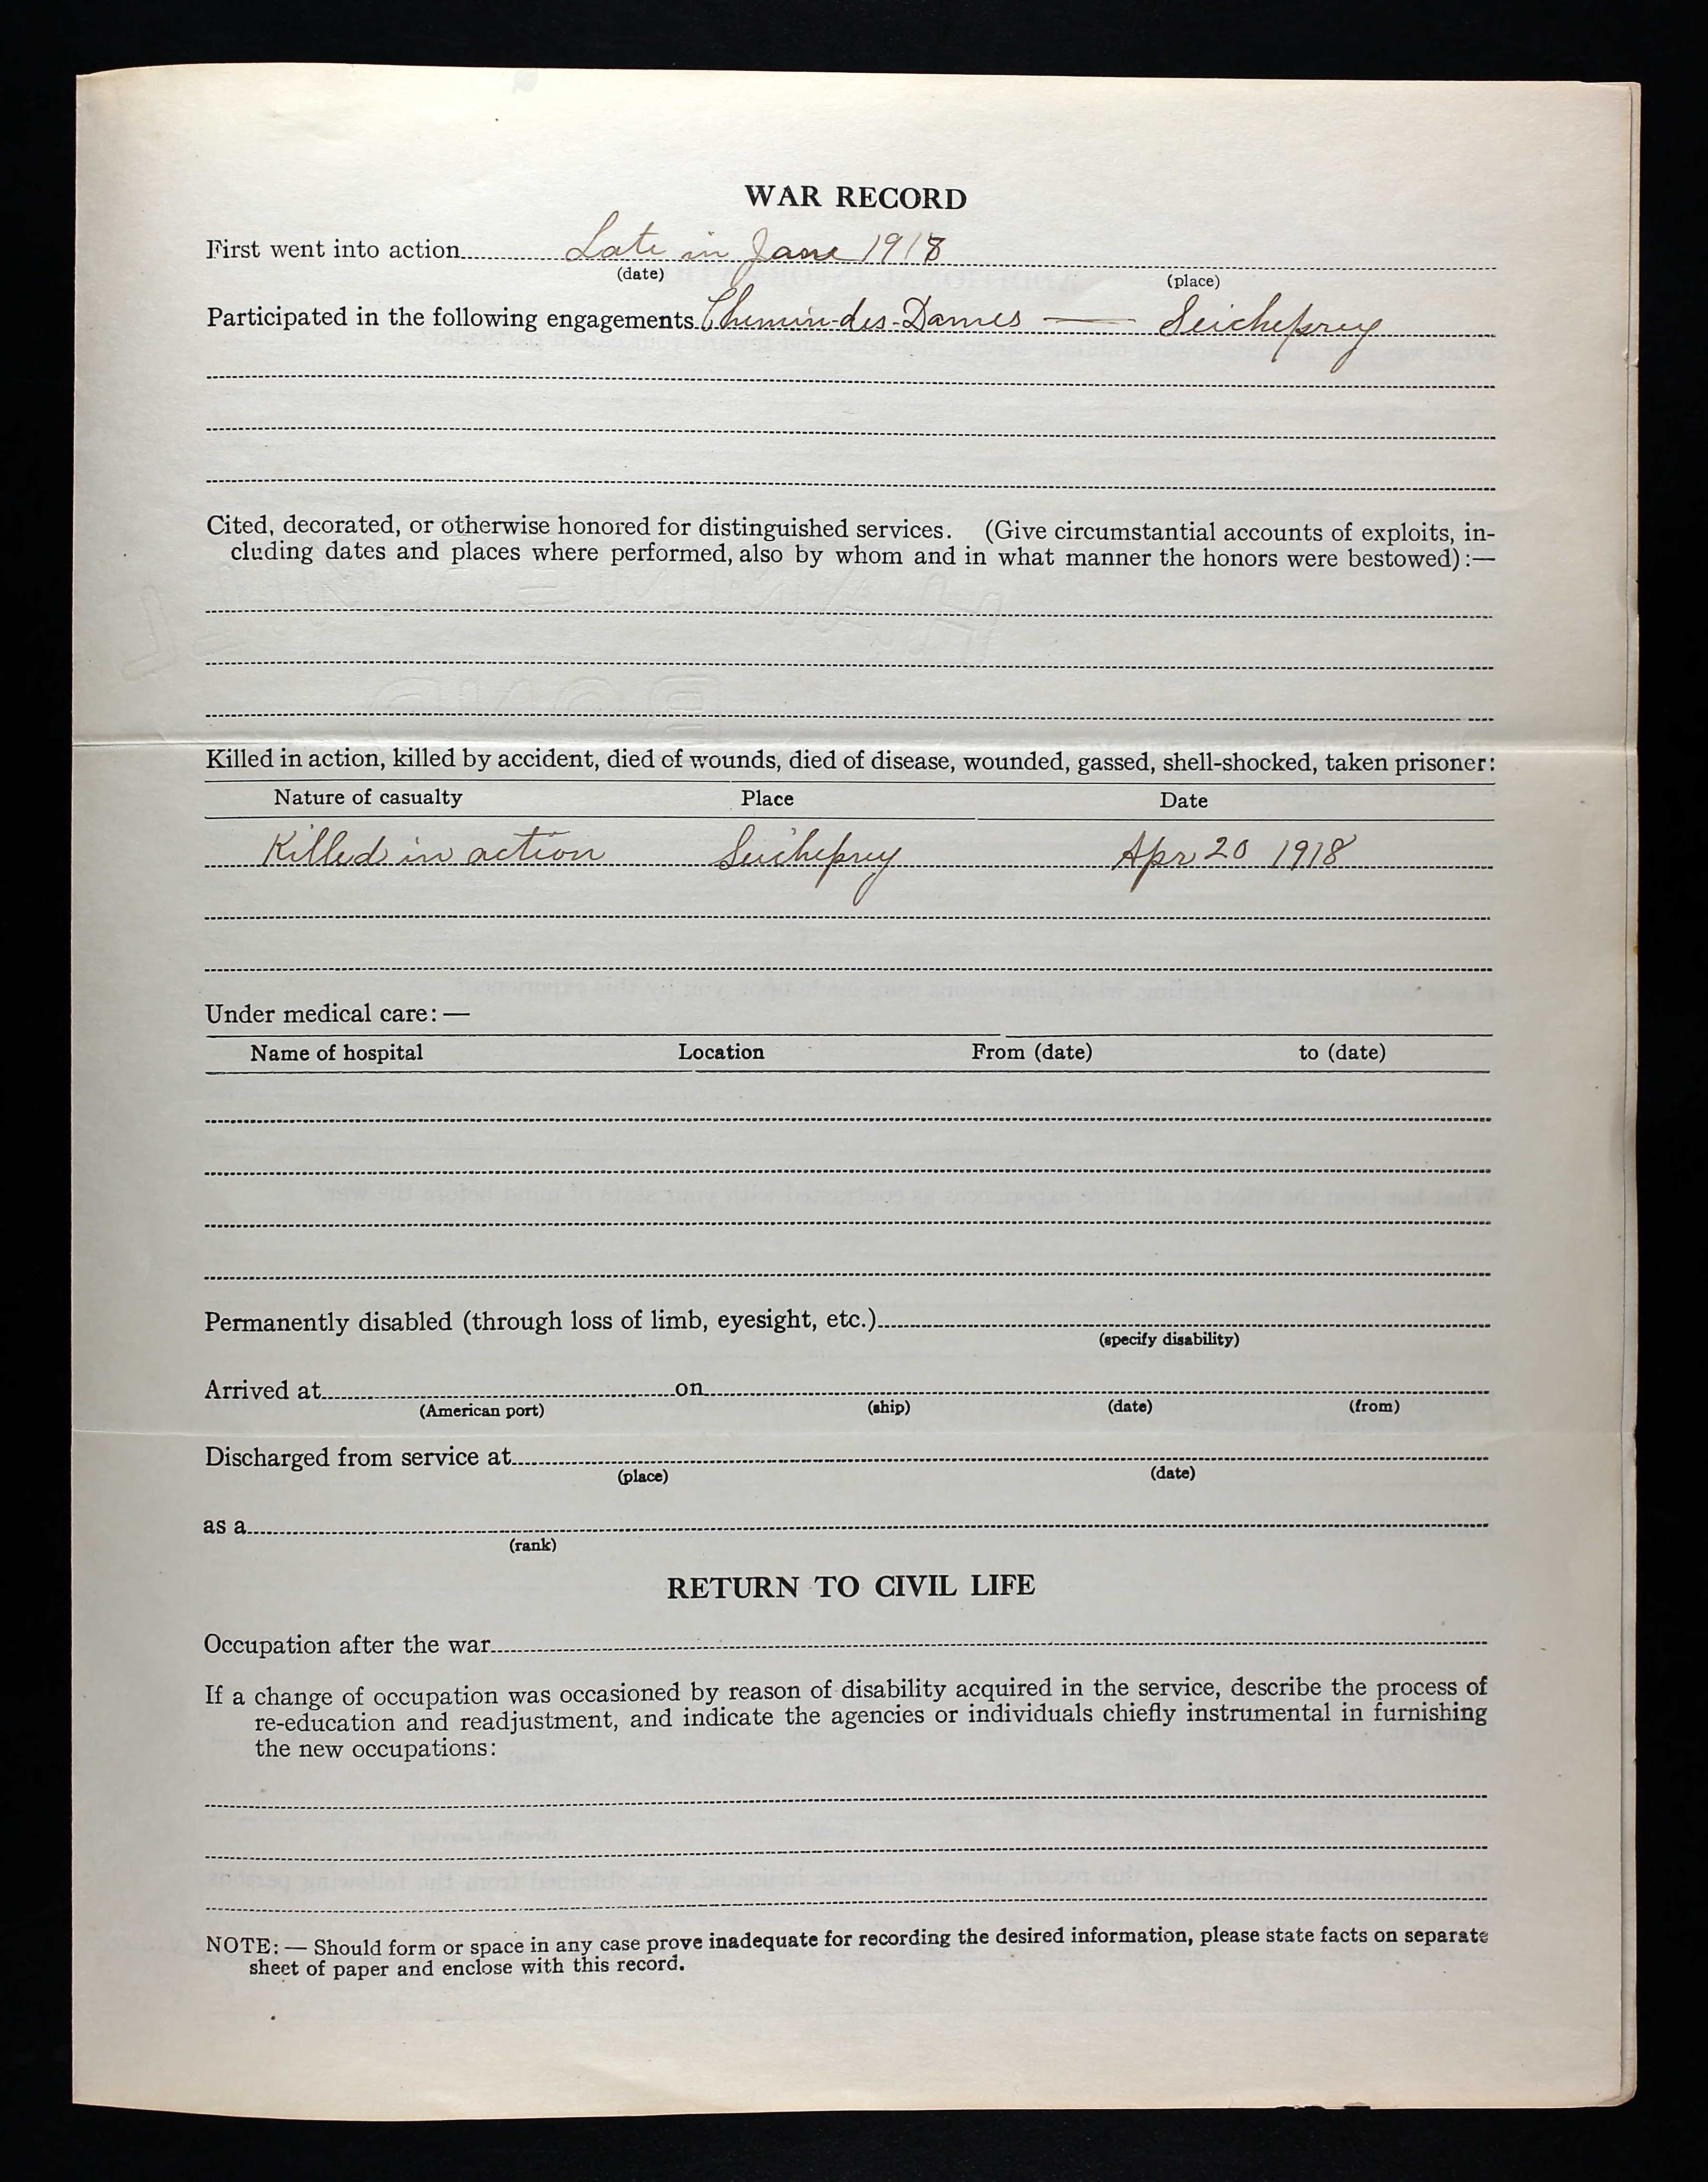 WAR RECORD
First went into action Late in Jane 1918
(date) (place)
Participated in the following engagements Chemin-des-Dames — Seicheprey
Cited, decorated, or otherwise honored for distinguished services. (Give circumstantial accounts of exploits, in-
cluding dates and places where performed, also by whom and in what manner the honors were bestowed):—
Killed in action, killed by accident, died of wounds, died of disease, wounded, gassed, shell-shocked, taken prisoner:
Nature of casualty Place Date
Killed in action Seicheprey Apr 20 1918
Under medical care: —
Name of hospital Location From (date) to (date)
Permanently disabled (through loss of limb, eyesight, etc.)
(specify disability)
Arrived at on
(American port) (ship) (date) (from)
Discharged from service at
(place) (date)
as a
(rank)
RETURN TO CIVIL LIFE
Occupation after the war
If a change of occupation was occasioned by reason of disability acquired in the service, describe the process of
re-education and readjustment, and indicate the agencies or individuals chiefly instrumental in furnishing
the new occupations:
NOTE: — Should form or space in any case prove inadequate for recording the desired information, please state facts on separate
sheet of paper and enclose with this record.